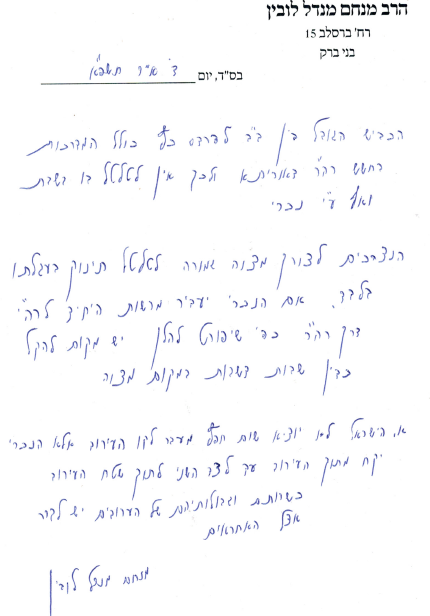 הרב מנחם מנדל לובין
רח' ברסלב 15
בני ברק
בס"ד, יום ד' א"ר תשפ"א
הכביש הגובל בין ב"ב לפרדס כץ כולל המדרכות
חשש רה"ר דאורייתא ולכך אין לטלטל בו בשבת
ואף ע"י נכרי
הנצרכים לצורך מצוה גמורה לטלטל תינוק בעגלתו
בלבד, אם הנכרי יעביר מרשות היחיד לרה"י
דרך רה"ר כפי שיפורט להלן יש מקום להקל
כדין שבות דשבות במקום מצוה
א. הישראל לא יוציא שום חפץ מעבר לקו העירוב אלא הנכרי
יקח מתוך העירוב עד לצד השני לתוך שטח העירוב
כשרותם וגבולותיהם של העירובים יש לברר
אצל האחראים
מנחם מנדל לובין